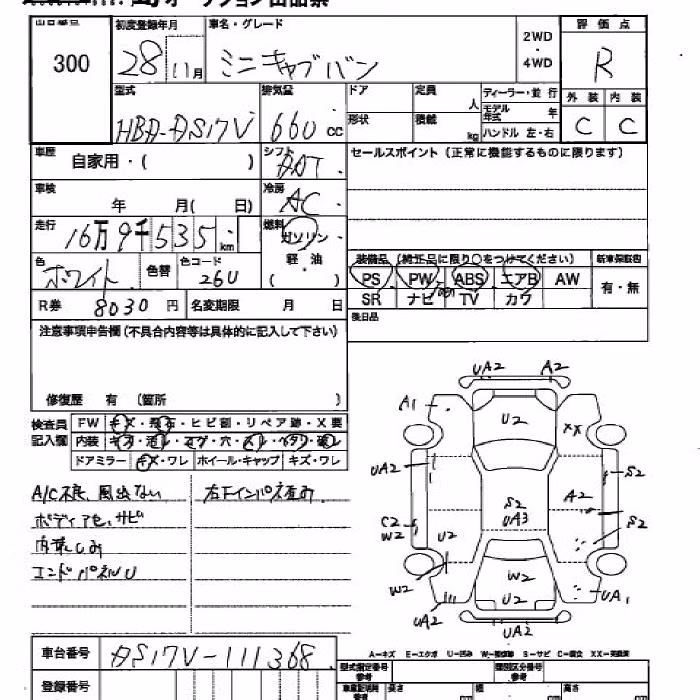 オークション出品票
出品番号 300
初度登録年月 28年 11月
車名・グレード ミニキャブバン
2WD・4WD
評価点 R
型式 HBD-DS17V
排気量 660 cc
ドア
形状
定員 人
積載 kg
ディーラー・並行
モデル年式 年
ハンドル 左・右
外装 C
内装 C
車歴 自家用・( )
シフト DAT
セールスポイント (正常に機能するものに限ります)
車検 年 月( 日)
冷房 AC
走行 16万9千535 km
燃料 ガソリン・軽油 ( )
色 ホワイト
色替
色コード 26U
装備品 (純正品に限り○をつけてください)
新車保証書 有・無
PS PW ABS エアB AW
SR ナビ TV カワ
R券 8030 円
名変期限 月 日
後日品
注意事項申告欄 (不具合内容等は具体的に記入して下さい)
修復歴 有 (箇所 )
検査員記入欄
FW キズ・飛石・ヒビ割・リペア跡・X要
内装 キズ・汚レ・コゲ・穴・スレ・ヘタリ・破レ
ドアミラー キズ・ワレ ホイール・キャップ キズ・ワレ
A/C不良、風出ない
ボディアセ、サビ
内張しみ
エンドパネルU
右下インパネ歪み
UA2 A2
A1 U2 XX
UA2 S2
A2
S2 UA3
C2 W2 U2 S2
W2 W2
U2 UA1
UA2 UA2
A=キズ E=エクボ U=凹み W=補修跡 S=サビ C=腐食 XX=交換済
車台番号 DS17V-111368
登録番号
型式指定番号 参考
類別区分番号 参考
長さ 幅 高さ